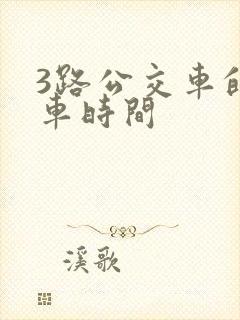 3路公交車
車時間
溪歌